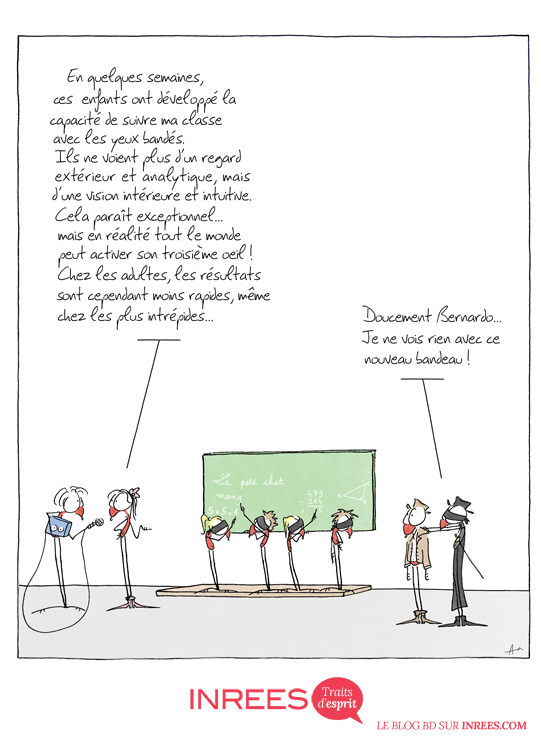 En quelques semaines,
ces enfants ont développé la
capacité de suivre ma classe
avec les yeux bandés.
Ils ne voient plus d'un regard
extérieur et analytique, mais
d'une vision intérieure et intuitive.
Cela paraît exceptionnel...
mais en réalité tout le monde
peut activer son troisième oeil !
Chez les adultes, les résultats
sont cependant moins rapides, même
chez les plus intrépides...
Doucement Bernardo...
Je ne vois rien avec ce
nouveau bandeau !
Le petit chat
INREES
Traits
d'esprit
LE BLOG BD SUR INREES.COM